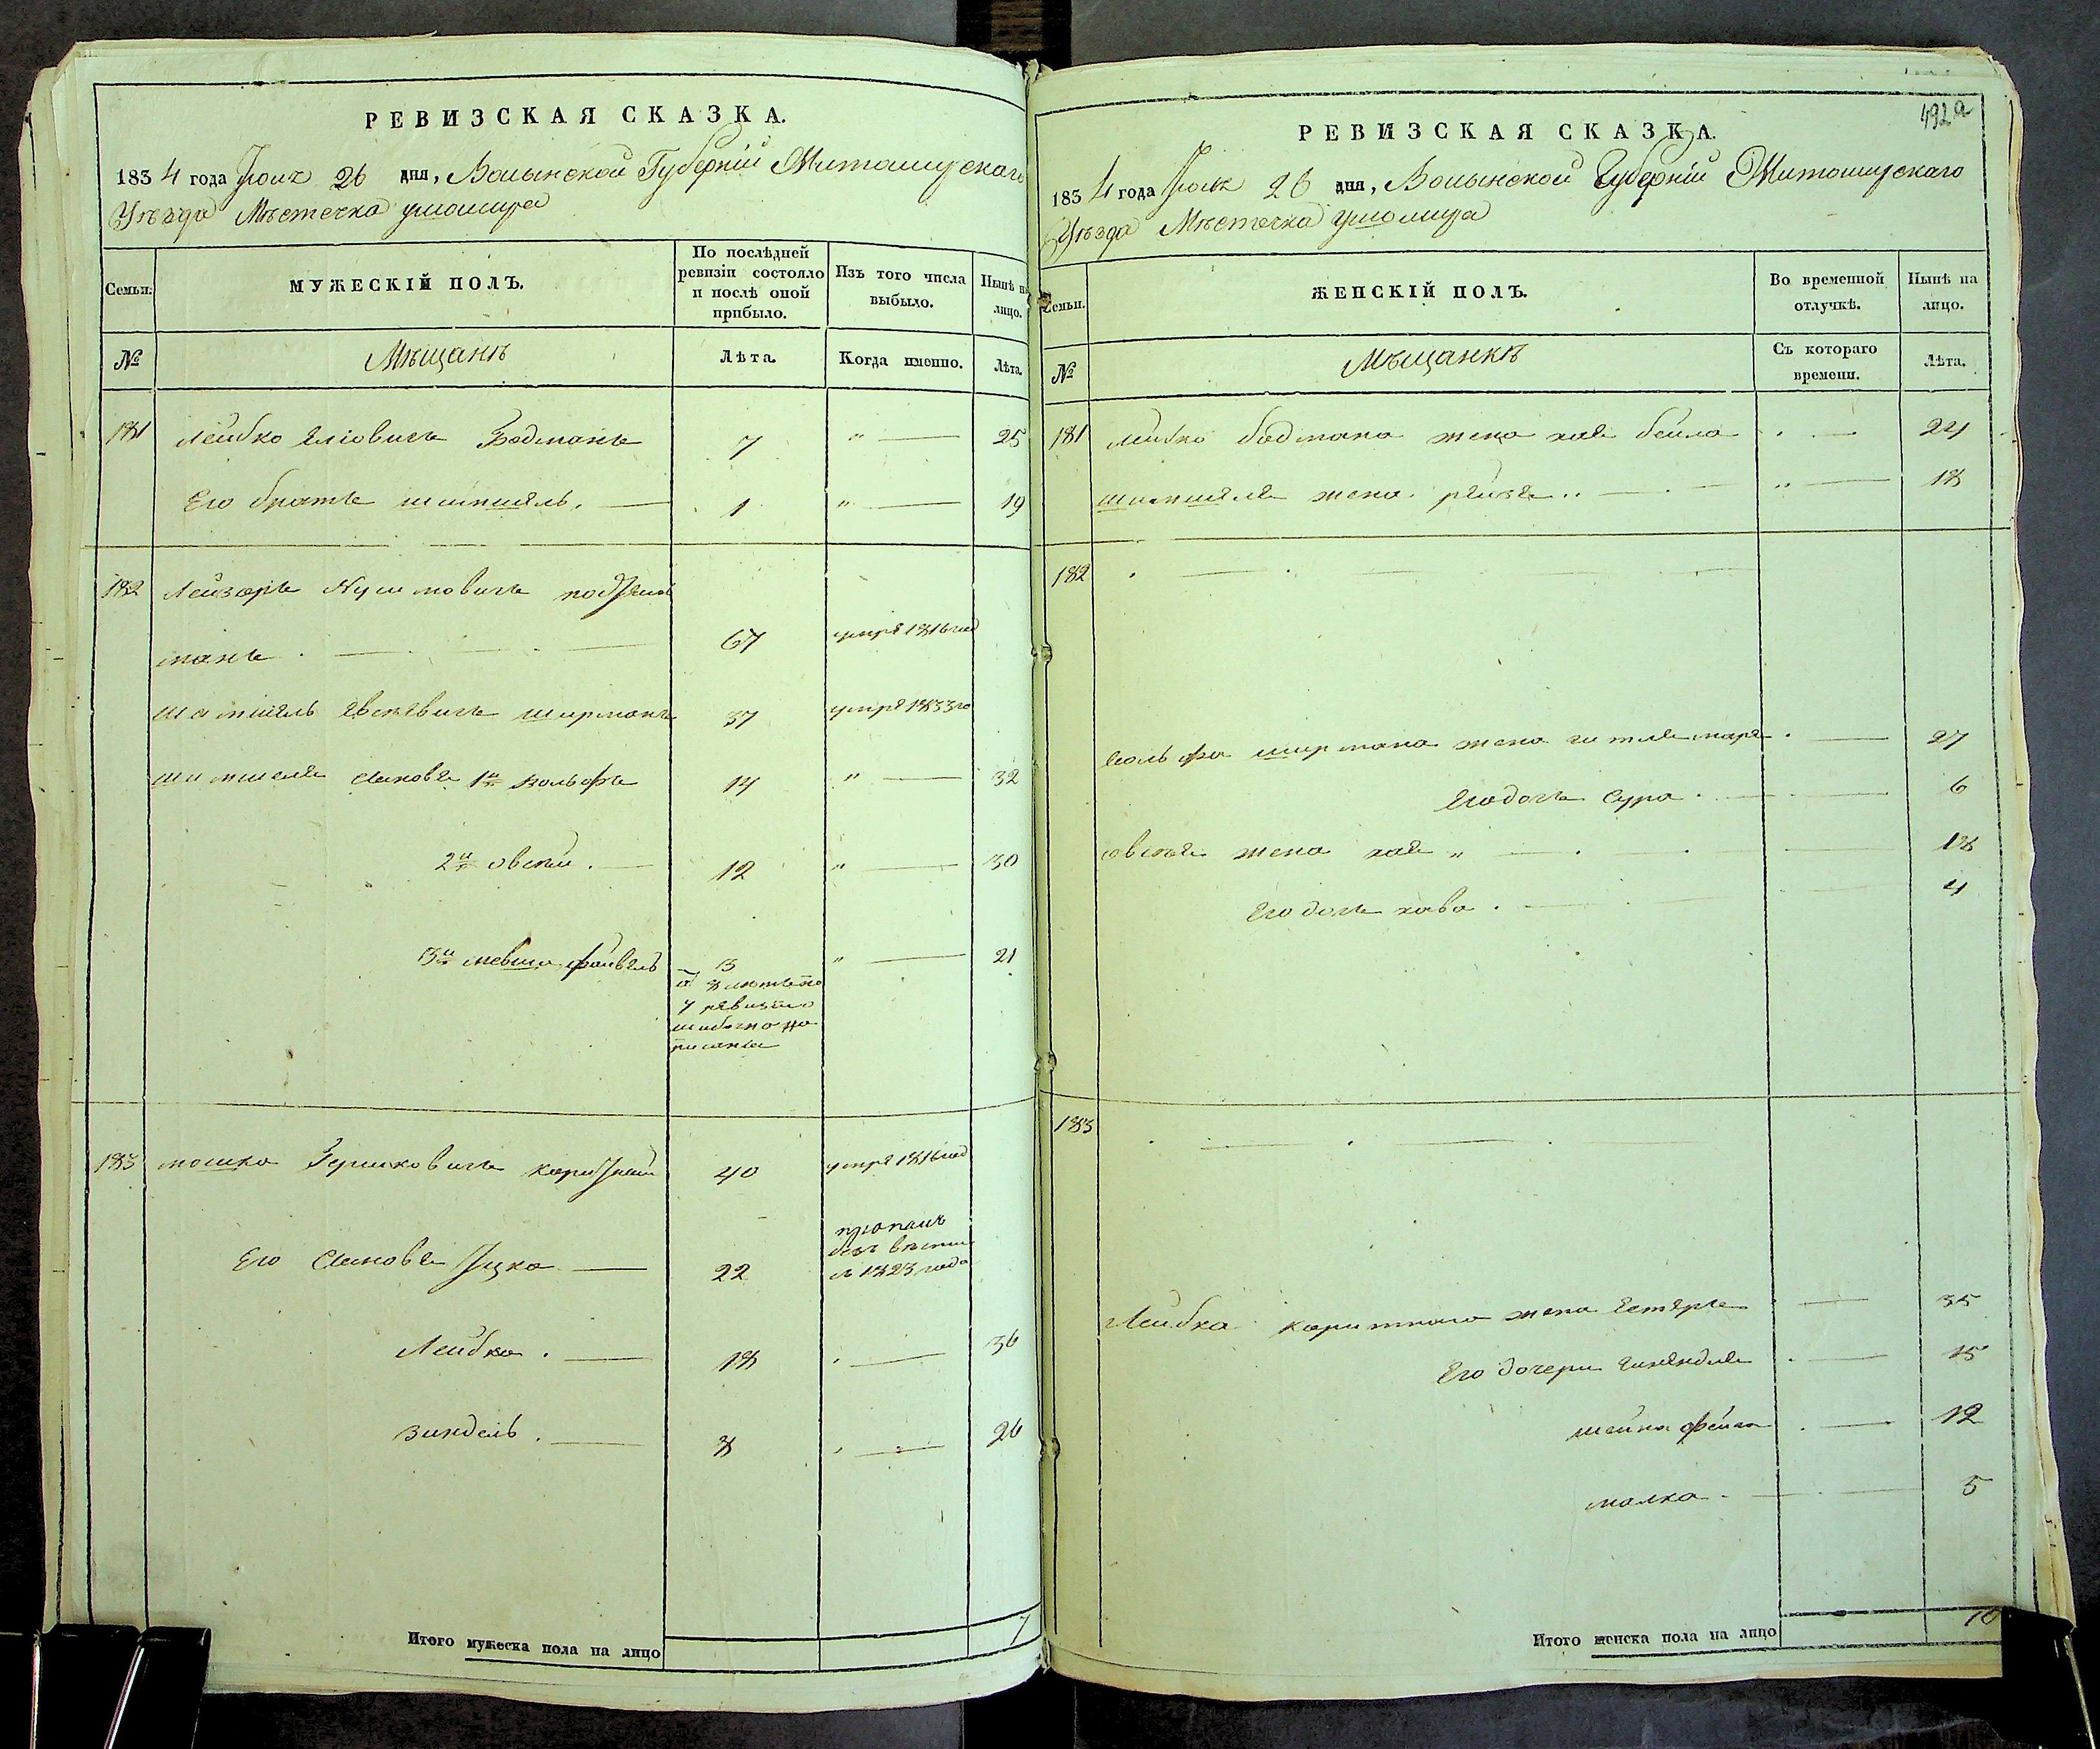 РЕВИЗСКАЯ СКАЗКА.
1834 года Іюня 26 дня, Волынской Губерніи Житомирскаго
Уѣзда Мѣстечка Ушомира
Семьи.
МУЖЕСКІЙ ПОЛЪ.
По послѣдней ревизіи состояло и послѣ оной прибыло.
Изъ того числа выбыло.
Нынѣ на лицо.
№
Мѣщанъ
Лѣта.
Когда именно.
Лѣта.
181 Лейбко Еліовичъ Бодманъ 7 " — 25
Его братъ 1 " — 19
182 Лейзоръ
манъ 67 умре 1816 год
Евсѣевичъ Ширманъ 37 умре 1833 го
Сыновя 1й Вольфъ 14 " — 32
2й Овсѣй 12 " — 30
3й Мевша Файвель 13 " — 21
7 ревизіи
ошибочно на
писанъ
183 Мошко 40 умре 1816 год
Его Сыновя Іцко — 22
пропалъ
безъ вѣсти
съ 1823 года
Лейбко . — 18 . — 36
Зиндель . — 8 . — 26
Итого мужеска пола на лицо 7
492а
РЕВИЗСКАЯ СКАЗКА.
1834 года Іюня 26 дня, Волынской Губерніи Житомирскаго
Уѣзда Мѣстечка Ушомира
Семьи.
ЖЕНСКІЙ ПОЛЪ.
Во временной отлучкѣ.
Нынѣ на лицо.
№
Мѣщанкѣ
Съ котораго времени.
Лѣта.
181 Лейбко Бодмана жена Хая Бейла . — 24
жена Рейзя " — 18
182
Вольфа Ширмана жена . — 27
Его дочь Сура . — 6
Овсѣя жена Хая " — 18
Его дочь Хава . — 4
183
Лейбка жена Естеръ . — 35
Его дочери . — 15
Шейна Фейга . — 12
Малка . — 5
Итого женска пола на лицо 10